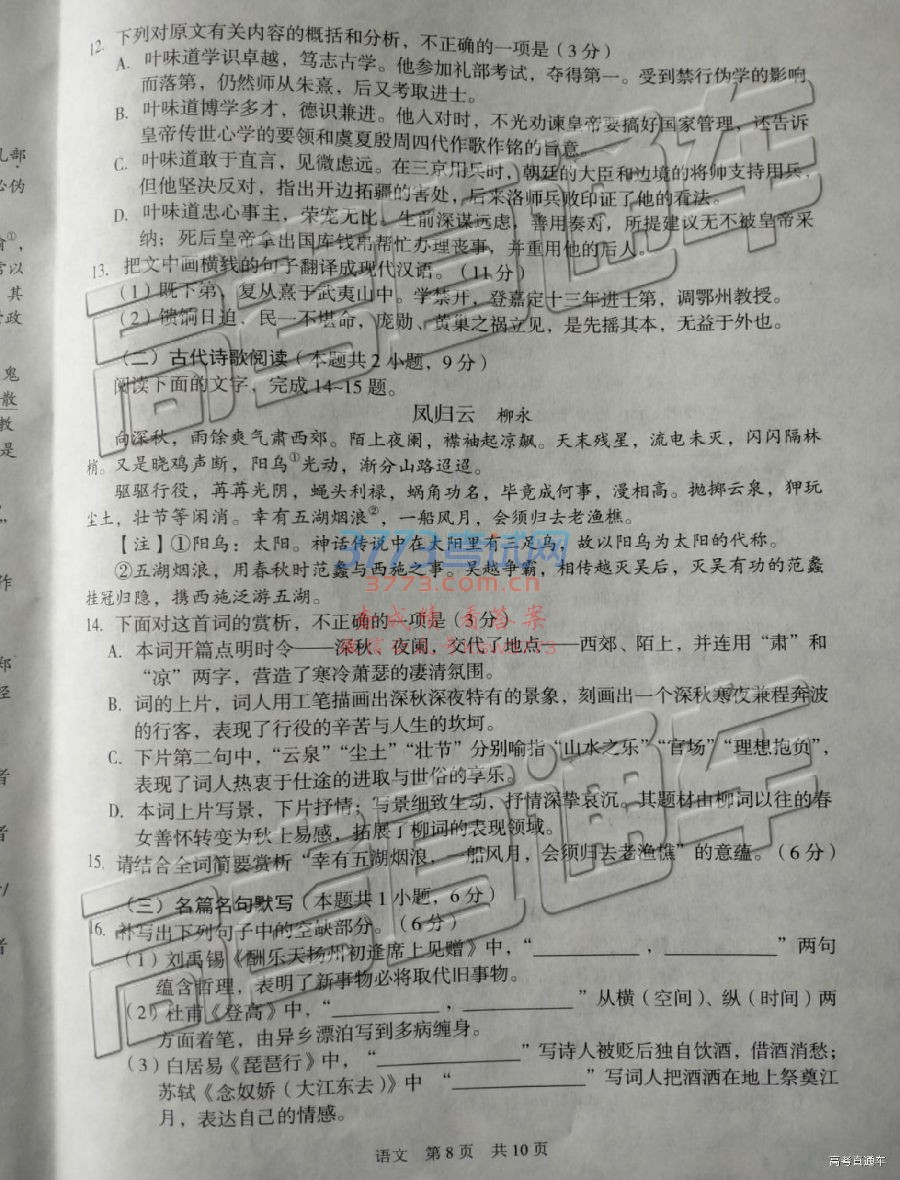 12. 下列对原文有关内容的概括和分析，不正确的一项是（3分）
A. 叶味道学识卓越，笃志古学。他参加礼部考试，夺得第一。受到禁行伪学的影响
而落第，仍然师从朱熹，后又考取进士。
B. 叶味道博学多才，德识兼进。他入对时，不光劝谏皇帝要搞好国家管理，还告诉
皇帝传世心学的要领和虞夏殷周四代作歌作铭的旨意。
C. 叶味道敢于直言，见微虑远。在三京用兵时，朝廷的大臣和边境的将帅支持用兵，
但他坚决反对，指出开边拓疆的害处，后来洛师兵败印证了他的看法。
D. 叶味道忠心事主，荣宠无比，生前深谋远虑，善用奏对，所提建议无不被皇帝采
纳；死后皇帝拿出国库钱帛帮忙办理丧事，并重用他的后人。
13. 把文中画横线的句子翻译成现代汉语。（11分）
（1）既下第，复从熹于武夷山中。学禁开，登嘉定十三年进士第，调鄂州教授。
（2）馈饷日迫，民一不堪命，庞勋、黄巢之祸立见，是先摇其本，无益于外也。
（二）古代诗歌阅读（本题共2小题，9分）
阅读下面的文字，完成14~15题。
凤归云 柳永
向深秋，雨馀爽气肃西郊。陌上夜阑，襟袖起凉飙。天末残星，流电未灭，闪闪隔林
梢。又是晓鸡声断，阳乌①光动，渐分山路迢迢。
驱驱行役，苒苒光阴，蝇头利禄，蜗角功名，毕竟成何事，漫相高。抛掷云泉，狎玩
尘土，壮节等闲消。幸有五湖烟浪②，一船风月，会须归去老渔樵。
【注】①阳乌：太阳。神话传说中在太阳里有三足乌，故以阳乌为太阳的代称。
②五湖烟浪，用春秋时范蠡与西施之事。吴越争霸，相传越灭吴后，灭吴有功的范蠡
挂冠归隐，携西施泛游五湖。
14. 下面对这首词的赏析，不正确的一项是（3分）
A. 本词开篇点明时令——深秋、夜阑，交代了地点——西郊、陌上，并连用“肃”和
“凉”两字，营造了寒冷萧瑟的凄清氛围。
B. 词的上片，词人用工笔描画出深秋深夜特有的景象，刻画出一个深秋寒夜兼程奔波
的行客，表现了行役的辛苦与人生的坎坷。
C. 下片第二句中，“云泉”“尘土”“壮节”分别喻指“山水之乐”“官场”“理想抱负”，
表现了词人热衷于仕途的进取与世俗的享乐。
D. 本词上片写景，下片抒情；写景细致生动，抒情深挚哀沉。其题材由柳词以往的春
女善怀转变为秋士易感，拓展了柳词的表现领域。
15. 请结合全词简要赏析“幸有五湖烟浪，一船风月，会须归去老渔樵”的意蕴。（6分）
（三）名篇名句默写（本题共1小题，6分）
16. 补写出下列句子中的空缺部分。（6分）
（1）刘禹锡《酬乐天扬州初逢席上见赠》中，“__________，__________”两句
蕴含哲理，表明了新事物必将取代旧事物。
（2）杜甫《登高》中，“__________，__________”从横（空间）、纵（时间）两
方面着笔，由异乡漂泊写到多病缠身。
（3）白居易《琵琶行》中，“__________”写诗人被贬后独自饮酒，借酒消愁；
苏轼《念奴娇（大江东去）》中 “__________”写词人把酒洒在地上祭奠江
月，表达自己的情感。
语文 第8页 共10页
高考直通车
高考直通车
高考直通车
3773考试网
3773.com.cn
高考直通车